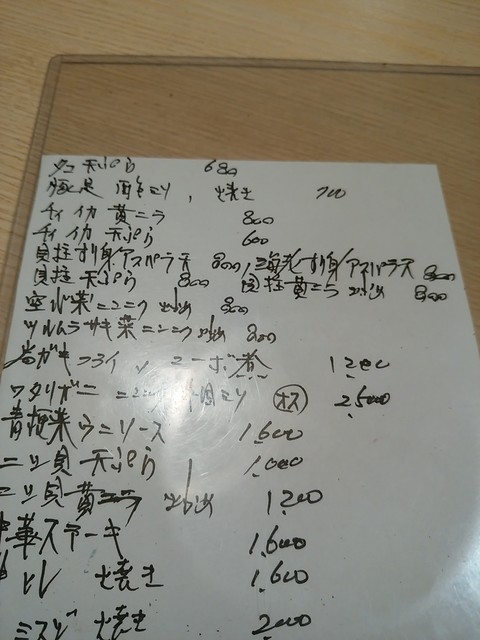 タコ天ぷら 680
豚足 , 焼き 700
チィイカ黄ニラ 800
チィイカ天ぷら 600
貝柱すり身アスパラ天 800, 海老すり身アスパラ天 800
貝柱天ぷら 800 貝柱黄ニラ炒め 800
空心菜ニンニク炒め 800
ツルムラサキ菜ニンニク炒め 800
岩ガキフライ, マーボ煮 1200
ワタリガニ オス 2,500
青梗菜ウニソース 1,600
ニツ貝天ぷら 1,000
ニツ貝黄ニラ 炒め 1,200
中華ステーキ 1,600
ヒレ 焼き 1,600
ミスジ 焼き 2,000